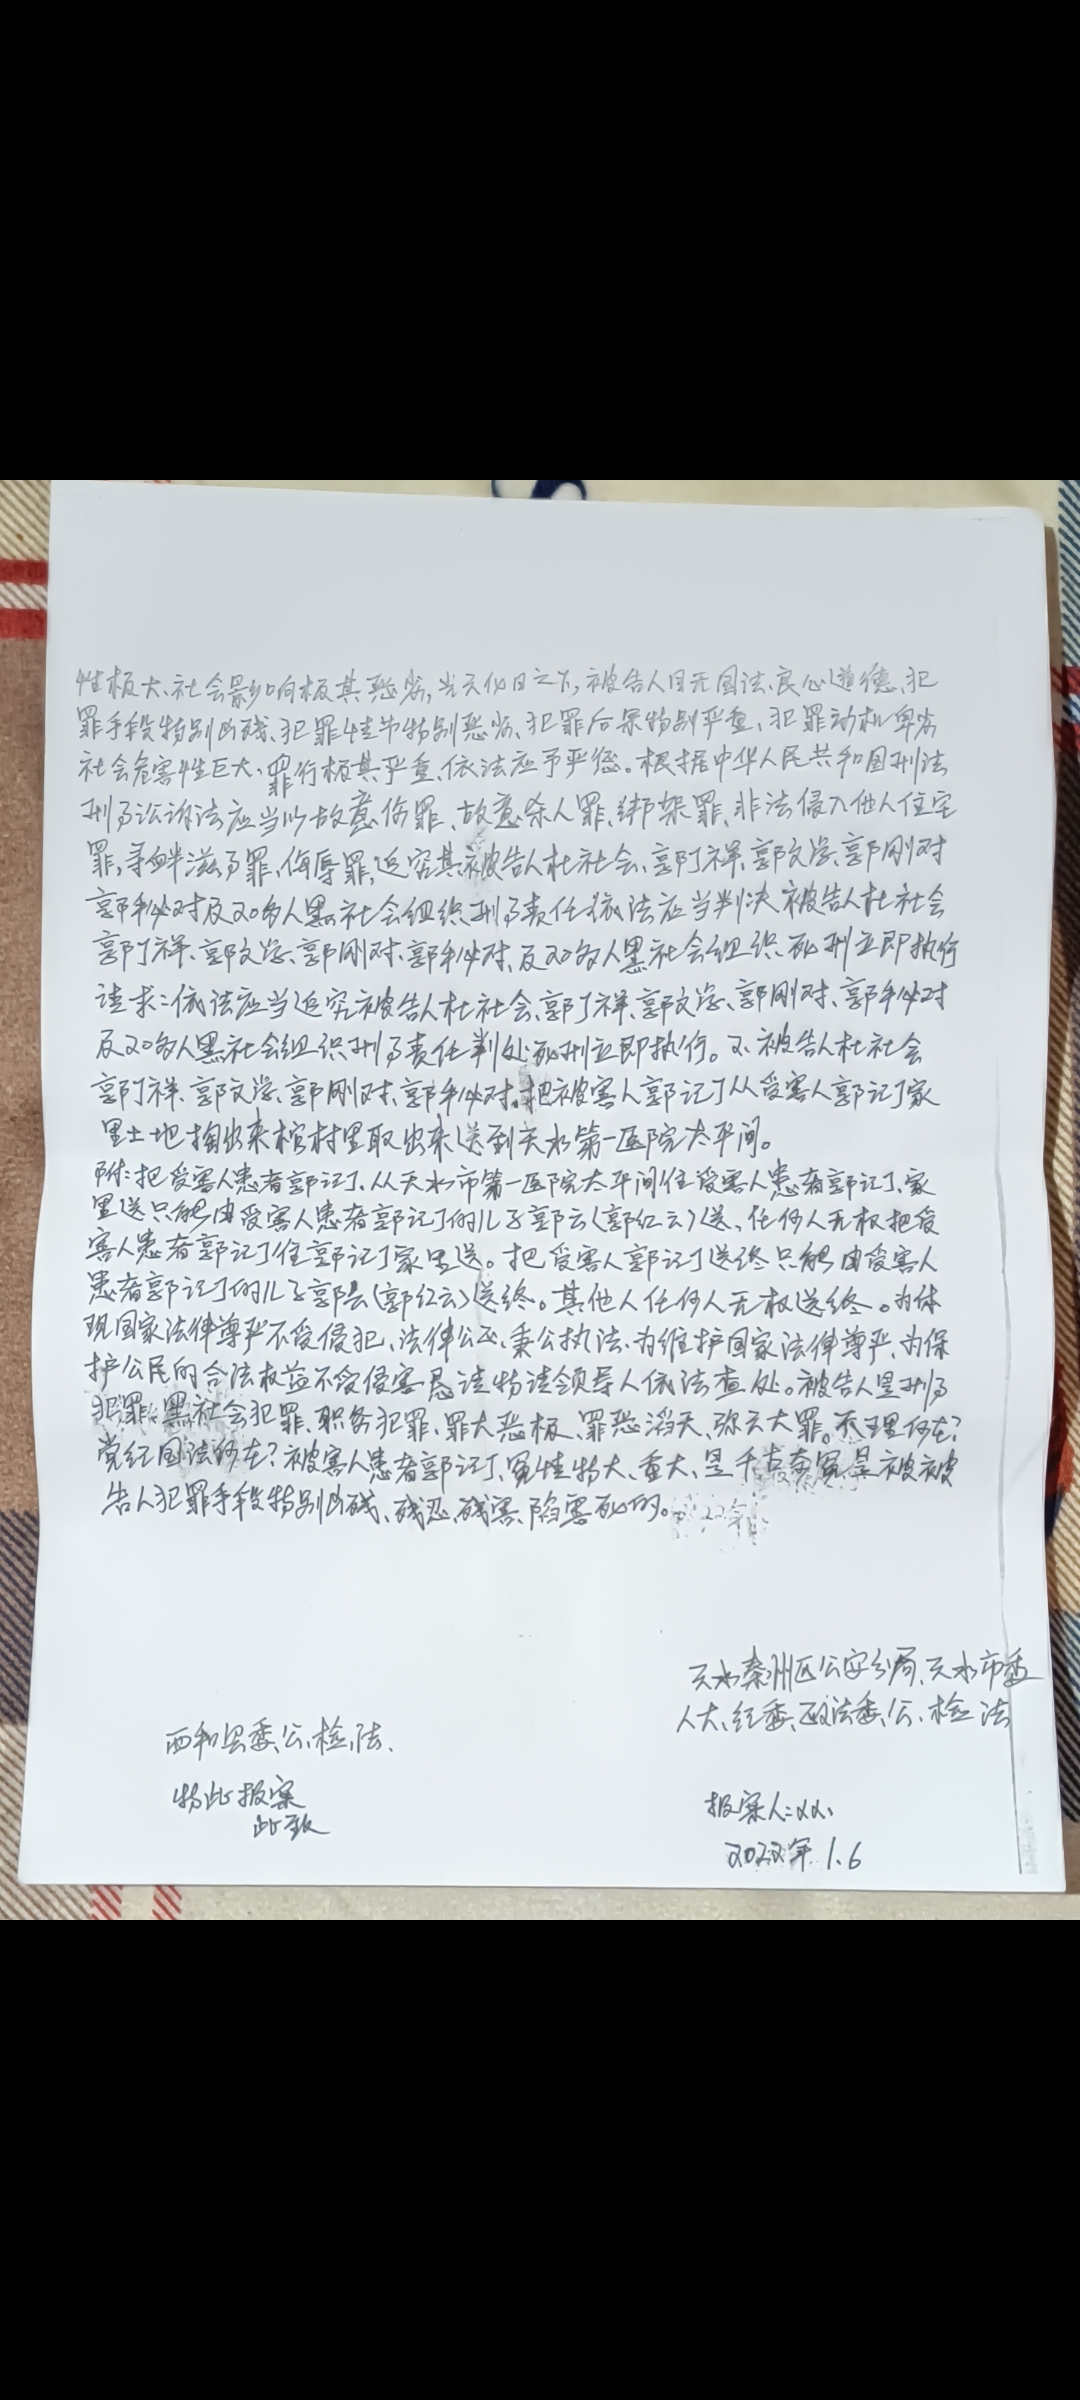 性极大、社会影响极其恶劣,光天化日之下,被告人目无国法、良心道德、犯
罪手段特别凶残、犯罪情节特别恶劣、犯罪后果特别严重、犯罪动机卑劣
社会危害性巨大、罪行极其严重、依法应予严惩。根据中华人民共和国刑法
刑事讼诉法应当以故意伤罪、故意杀人罪、绑架罪、非法侵入他人住宅
罪,寻衅滋事罪、侮辱罪,追究其被告人杜社会、郭丁祥、郭文学、郭刚对
郭 对及20多人黑社会组织刑事责任依法应当判决被告人杜社会
郭丁祥、郭文学、郭刚对、郭 对、及20多人黑社会组织死刑立即执行
请求:依法应当追究被告人杜社会、郭丁祥、郭文学、郭刚对、郭 对
及20多人黑社会组织刑事责任判处死刑立即执行。2、被告人杜社会
郭丁祥、郭文学、郭刚对、郭 对、把被害人郭记丁从受害人郭记丁家
里土地掏出来棺材里取出来送到天水第一医院太平间。
附:把受害人患者郭记丁、从天水市第一医院太平间往受害人患者郭记丁、家
里送只能由受害人患者郭记丁的儿子郭云(郭红云)送、任何人无权把受
害人患者郭记丁往郭记丁家里送。把受害人郭记丁送终只能由受害人
患者郭记丁的儿子郭云(郭红云)送终。其他人任何人无权送终。为体
现国家法律尊严不受侵犯、法律公正、秉公执法、为维护国家法律尊严、为保
护公民的合法权益不受侵害恳请特请领导人依法查处。被告人是刑事
犯罪、黑社会犯罪、职务犯罪、罪大恶极、罪恶滔天、弥天大罪。天理何在?
党纪国法何在?被害人患者郭记丁、冤情特大、重大、是千古奇冤是被被
告人犯罪手段特别凶残、残忍、残害、陷害死的。
天水秦州区公安分局、天水市委
人大、纪委、政法委、公、检、法
西和县委、公、检、法、
特此报案
此致
报案人:
2022年.1.6